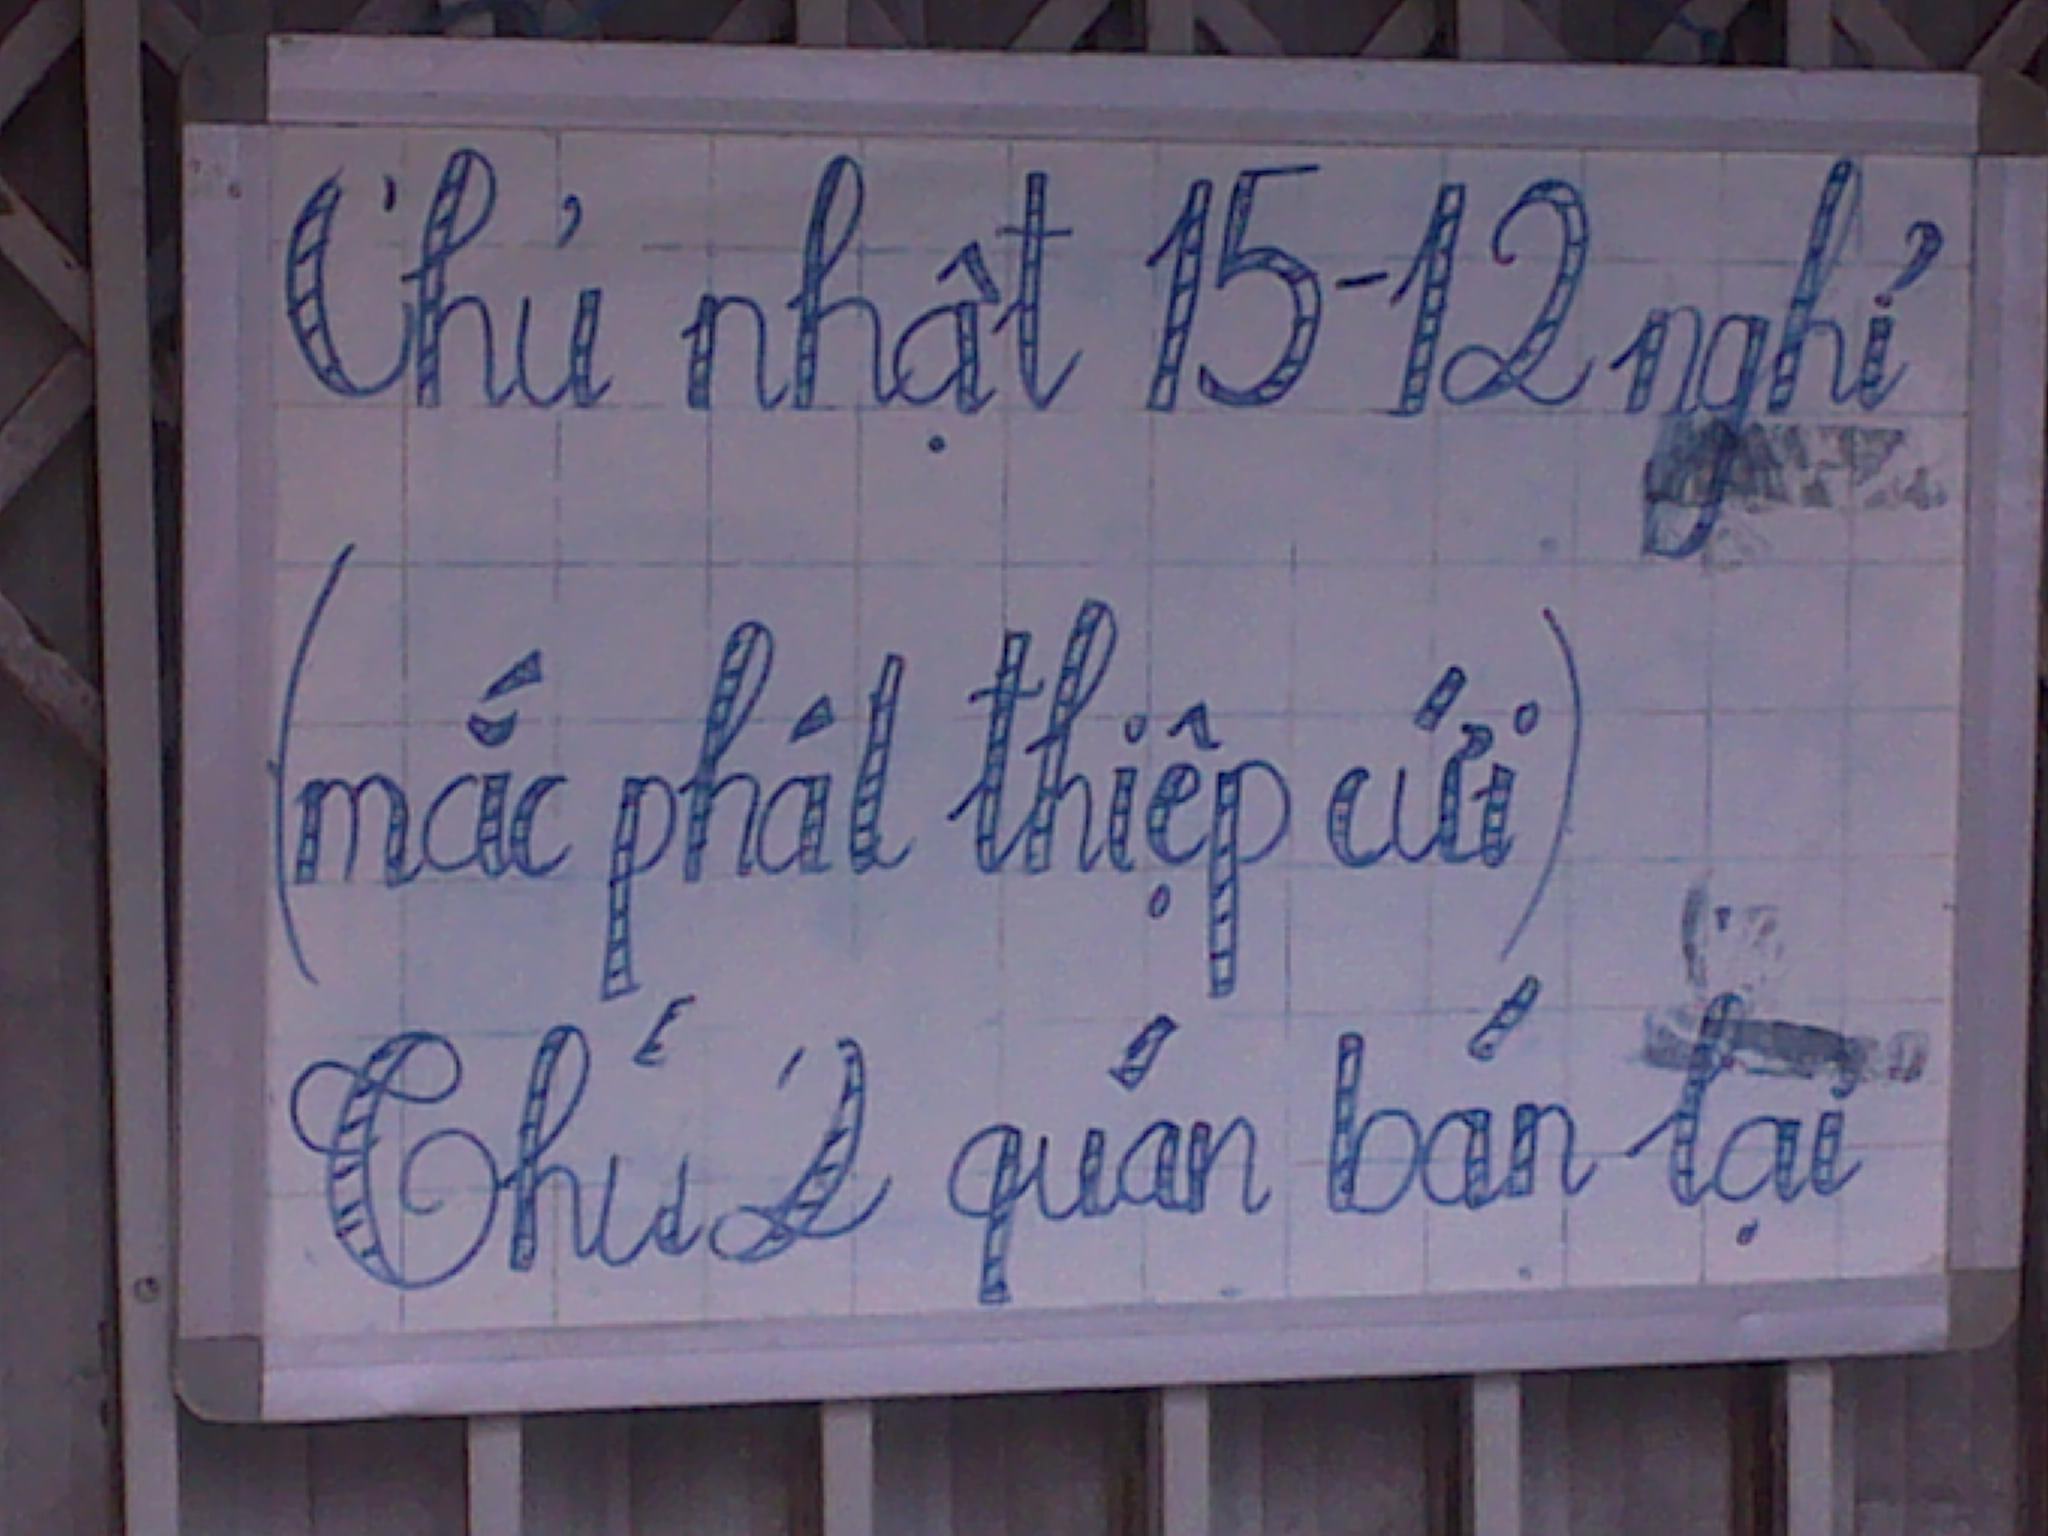 Chủ nhật 15-12 nghỉ
(mắc phát thiệp cưới)
Thứ 2 quán bán lại